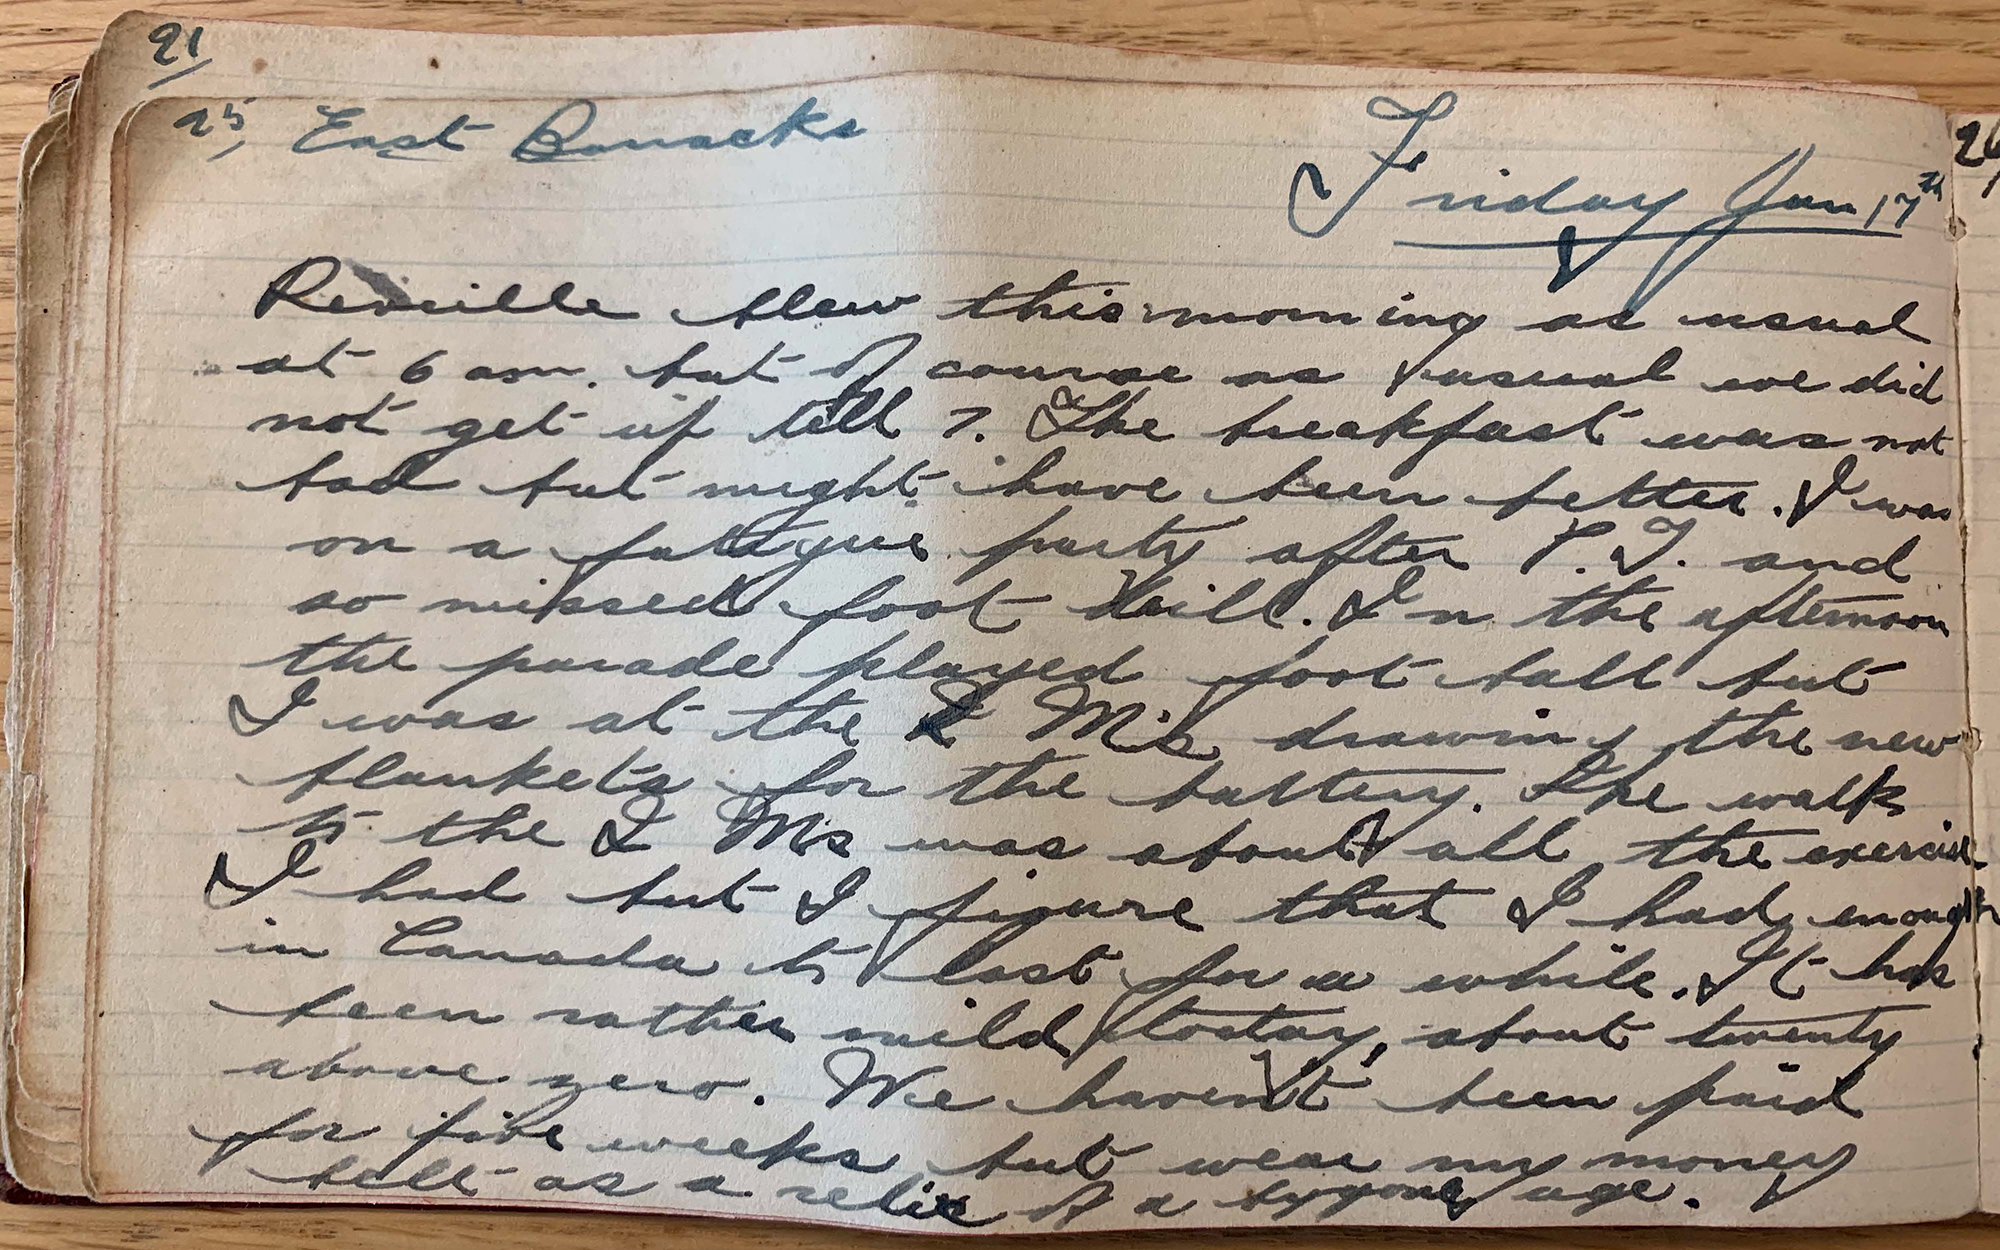 21
25, East Barracks
Friday Jan 17th
26
Reveille blew this morning as usual
at 6 am. but of course as usual we did
not get up till 7. The breakfast was not
bad but might have been better. I was
on a fatigue party after P.T. and
so missed foot drill. In the afternoon
the parade played foot ball but
I was at the Q M's drawing the new
blankets for the battery. The walk
to the Q Ms was about all the exercise
I had but I figure that I had enough
in Canada to last for a while. It has
been rather mild today, about twenty
above zero. We haven't been paid
for five weeks but wear my money
belt as a relic of a bygone age.